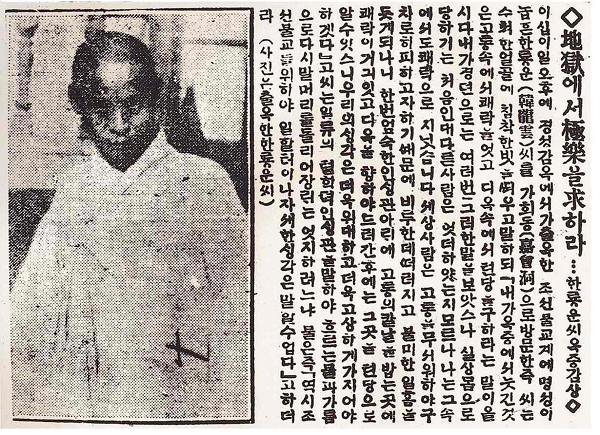 ◇地獄에서極樂을求하라…한룡운씨옥중감상◇
이십이일오후에 경성감옥에서가출옥한 조선불교계에 명성이
놉흔한룡운(韓龍雲)씨를 가회동(嘉會洞)으로방문한즉 씨는
수척한얼골에 침착한빗을ᄯᅴ우고말하되 「내가옥중에서늣긴것
은고통속에서쾌락을엇고 디옥속에서텬당을구하라는 말이올
시다내가경뎐으로는 여러번그러한말을보앗스나 실상몸으로
당하기는 처음인대다른사람은 엇더하얏는지모르나 나는그속
에서도쾌락으로 지낫슴니다세상사람은 고통을무서워하야구
차로히피하고자하기ᄯᅢ문에 비루한데ᄯᅥ러지고 불미한일홈을
듯게되나니 한번엄숙한인생관아래에 고통의칼날을밟는곳에
쾌락이거긔잇고디옥을 향하야드러간후에는 그곳을 텬당으로
알수잇스니우리의생각은 더욱위대하고더욱고상하게가지어야
하겟다」고 씨는일류의 텰학뎍인생관을말하야 흐르는물과가틈
으로다시말머리를돌리어장래는 엇지하려느냐 물은즉「역시조
선불교를위하야 일할터이나자세한생각은 말할수업다」고하더
라 (사진은출옥한한룡운씨)